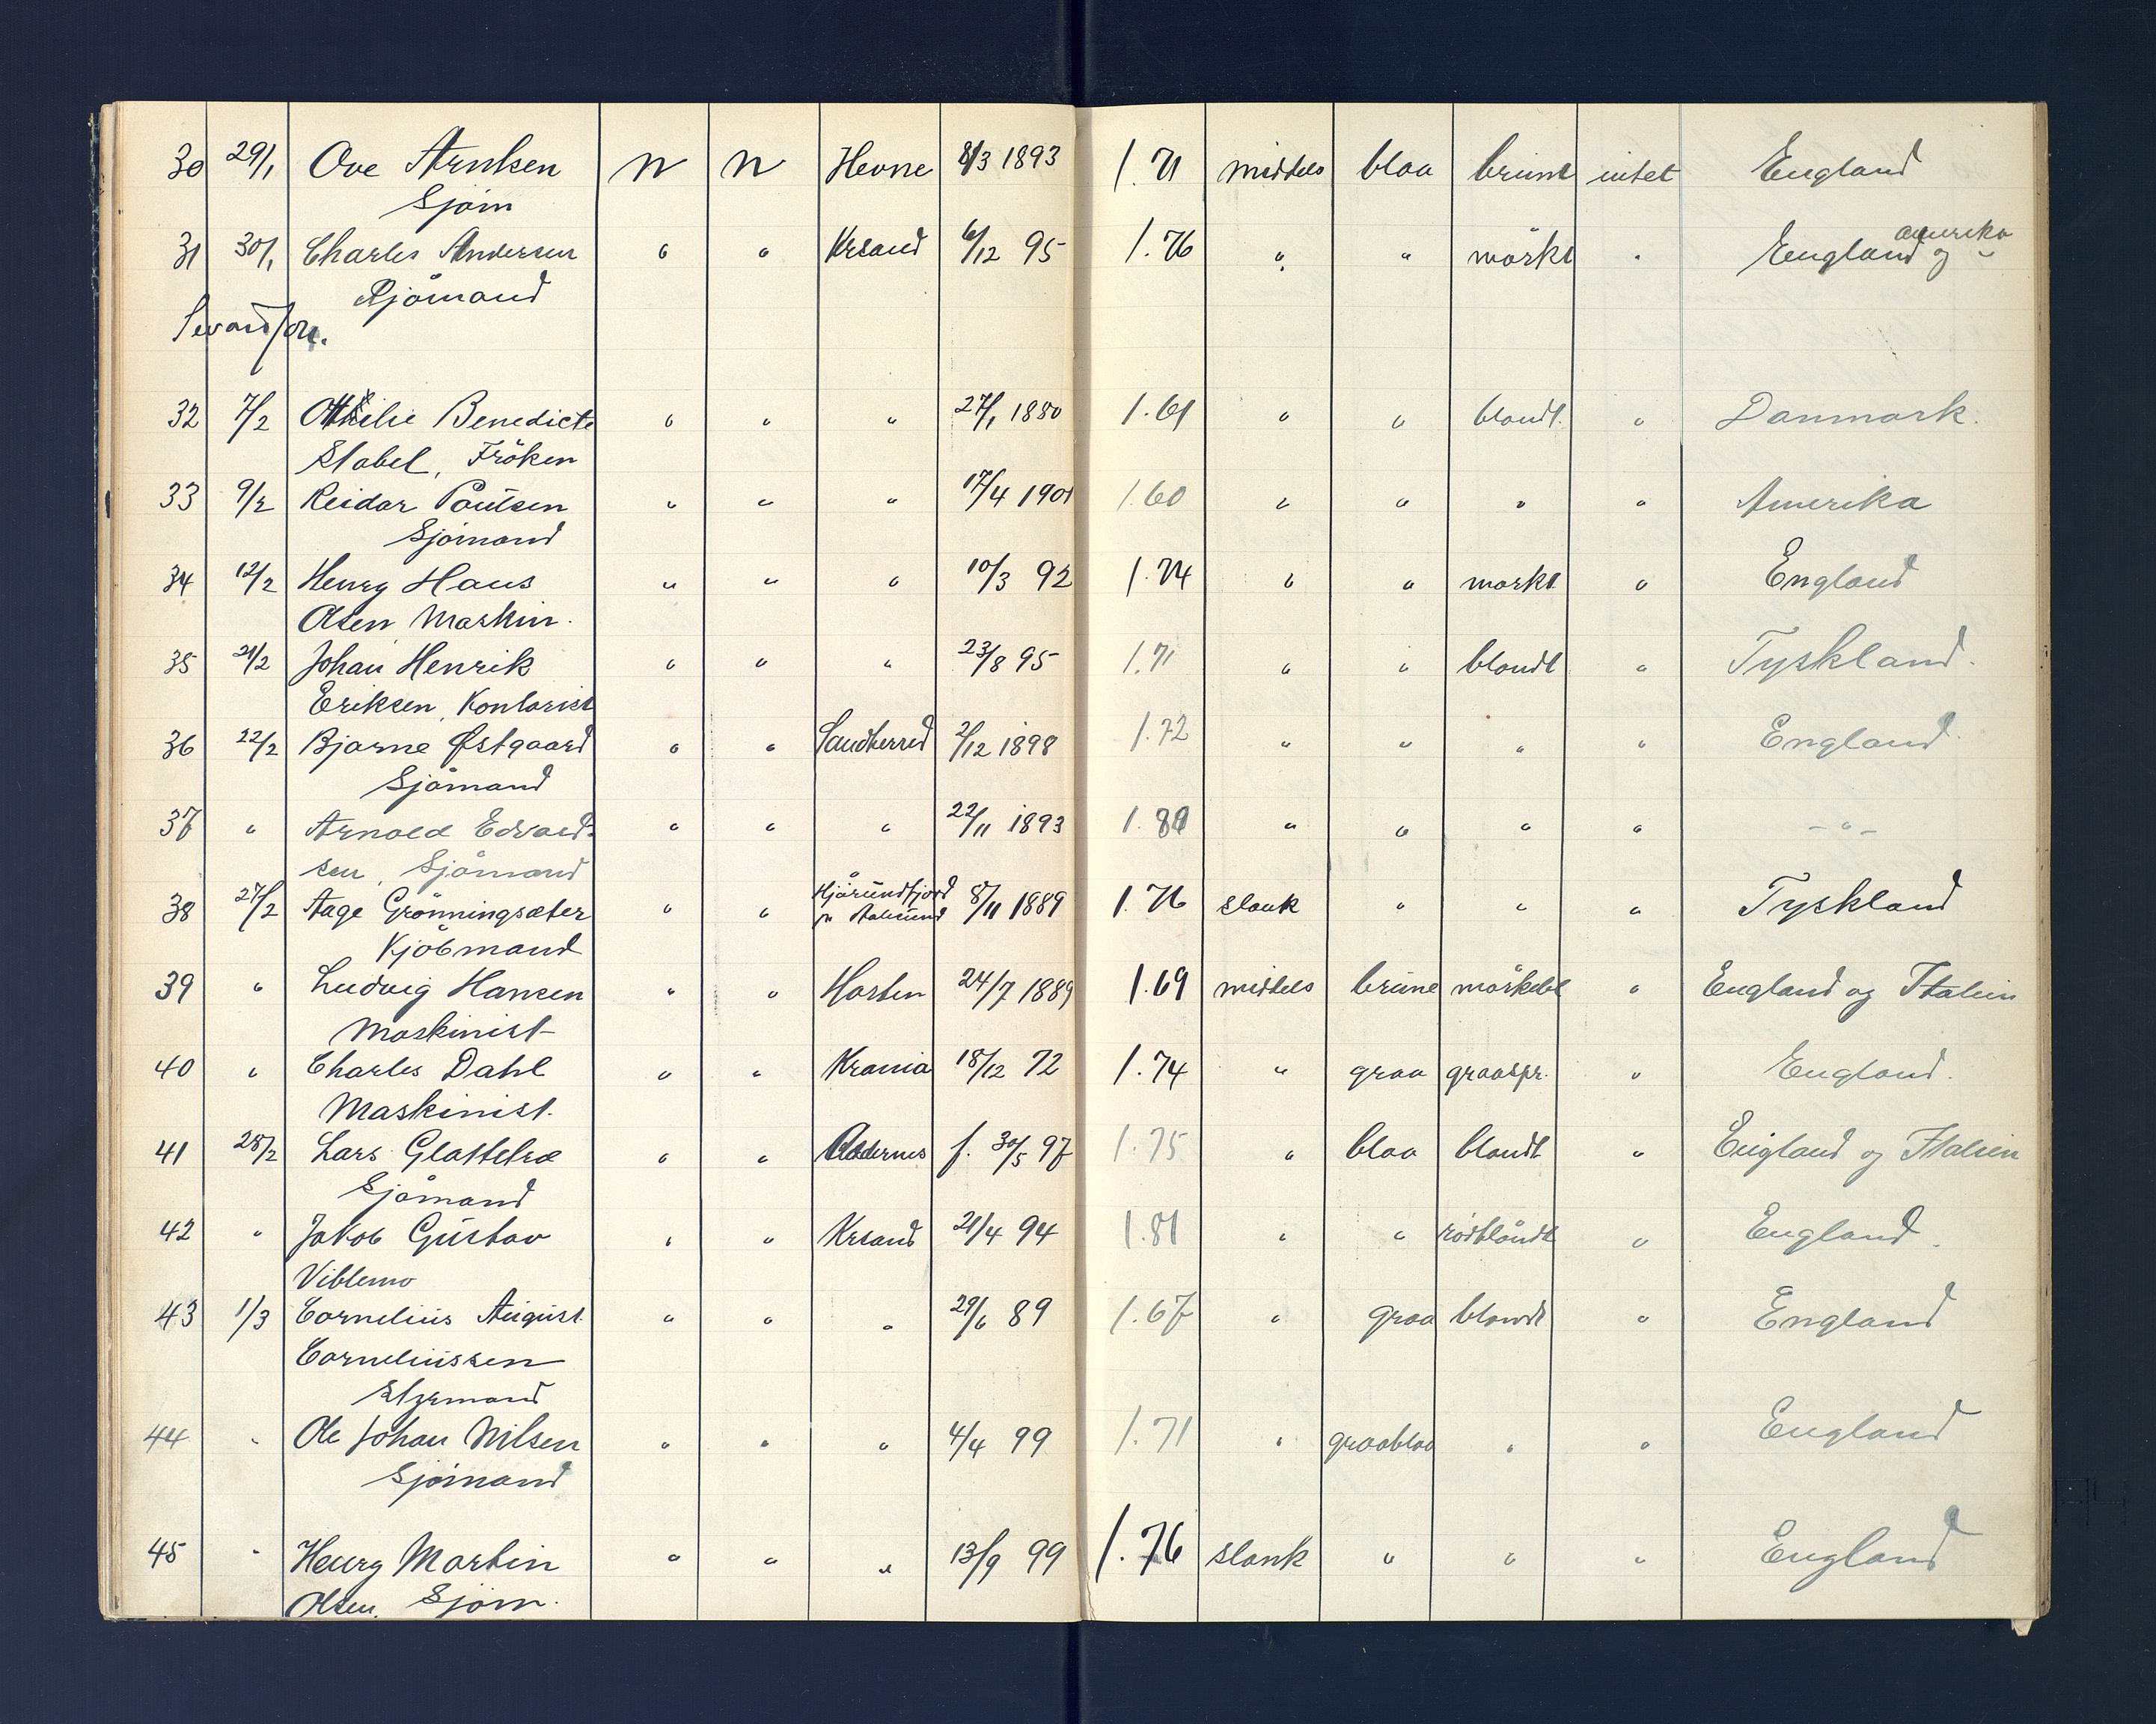 30 29/1 Ove Arntsen n n Hevne 8/3 1893 1.71 middels blaa brunt intet England
Sjöm
31 30/1 Charles Andersen " " Krsand 6/12 95 1.76 " " mörkt " England og Amerika
Sjömand
32 7/2 Othilie Benedicte " " " 27/1 1880 1.61 " " blondt. " Danmark.
Stabel, Fröken
33 9/2 Reidar Paulsen " " " 17/4 1901 1.60 " " " " Amerika
Sjömand
34 12/2 Henry Haus " " " 10/3 92 1.74 " " morkt " England
Olsen Maskin.
35 21/2 Johan Henrik " " " 23/8 95 1.71 " " blondt " Tyskland.
Eriksen, Kontorist
36 22/2 Bjarne Østgaard " " Sandherred 2/12 1898 1.72 " " " " England
Sjömand
37 " Arnold Edvard- " " " 22/11 1893 " " " " -"-
sen, Sjömand
38 27/2 Aage Grönningsæter " " Hjörundfjord 8/11 1889 1.76 slank " " " Tyskland
Kjöbmand pr Aalesund
39 " Ludvig Hansen " " Horten 24/7 1889 1.69 middels brune mörkebl " England og Italien
Maskinist
40 " Charles Dahl " " Krania 18/12 72 1.74 " graa graaspr. " England.
Maskinist.
41 28/2 Lars Glattetræ " " f. 30/5 97 1.75 " blaa blondt " England og Italien
Sjömand
42 " Jakob Gustav " " Krsand 21/4 94 1.81 " " rödblondt " England.
Viblemo
43 1/3 Cornelius August " " " 29/6 89 1.67 " graa blondt " England
Corneliussen
Styrmand
44 " Ole Johan Nilsen " " " 4/4 99 1.71 " graablaa " " England
Sjömand
45 " Henry Martin " " " 13/9 99 1.76 slank " " " England
Olsen, Sjöm.